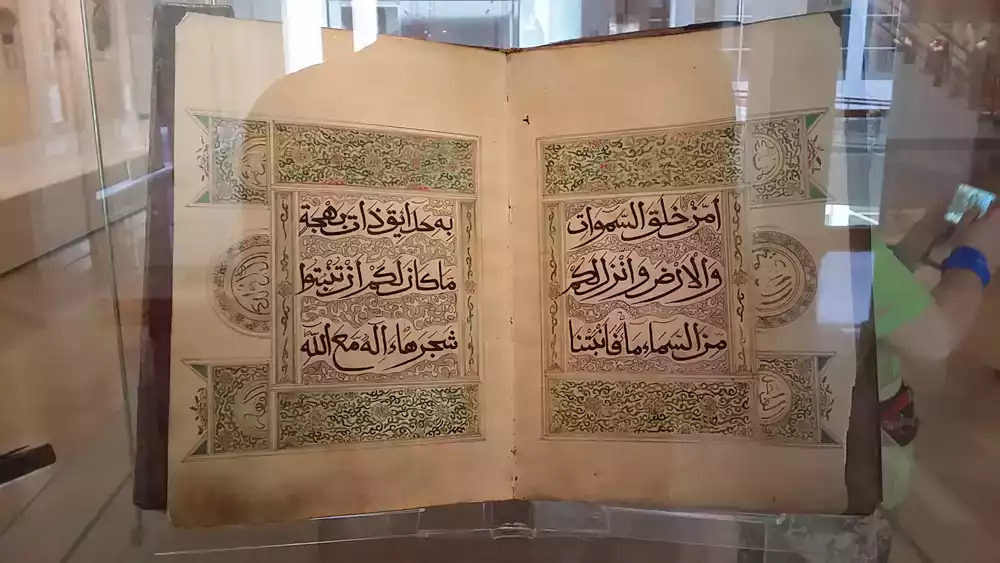 أمن خلق السموات
والأرض وأنزل لكم
من السماء ماء فأنبتنا
به حدايق ذات بهجة
ما كان لكم أن تنبتوا
شجرها ءاله مع الله